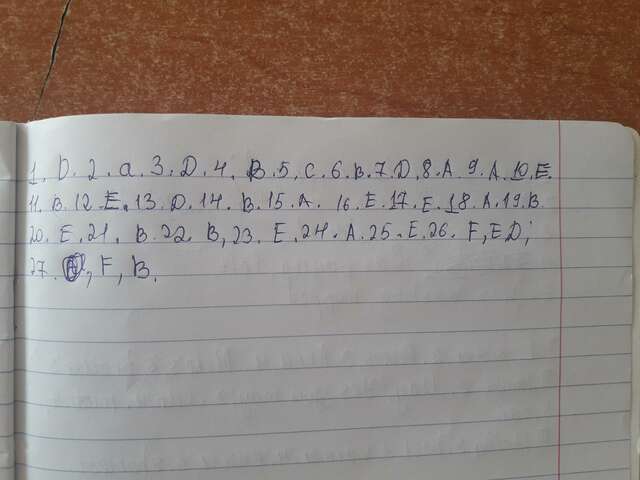 1. D. 2. a. 3. D. 4. B. 5. C. 6. B. 7. D. 8. A. 9. A. 10. E.
11. B. 12. E. 13. D. 14. B. 15. A. 16. E. 17. E. 18. A. 19. B.
20. E. 21. B. 22. B, 23. E. 24. A. 25. E. 26. F, E D;
27. , F, B.